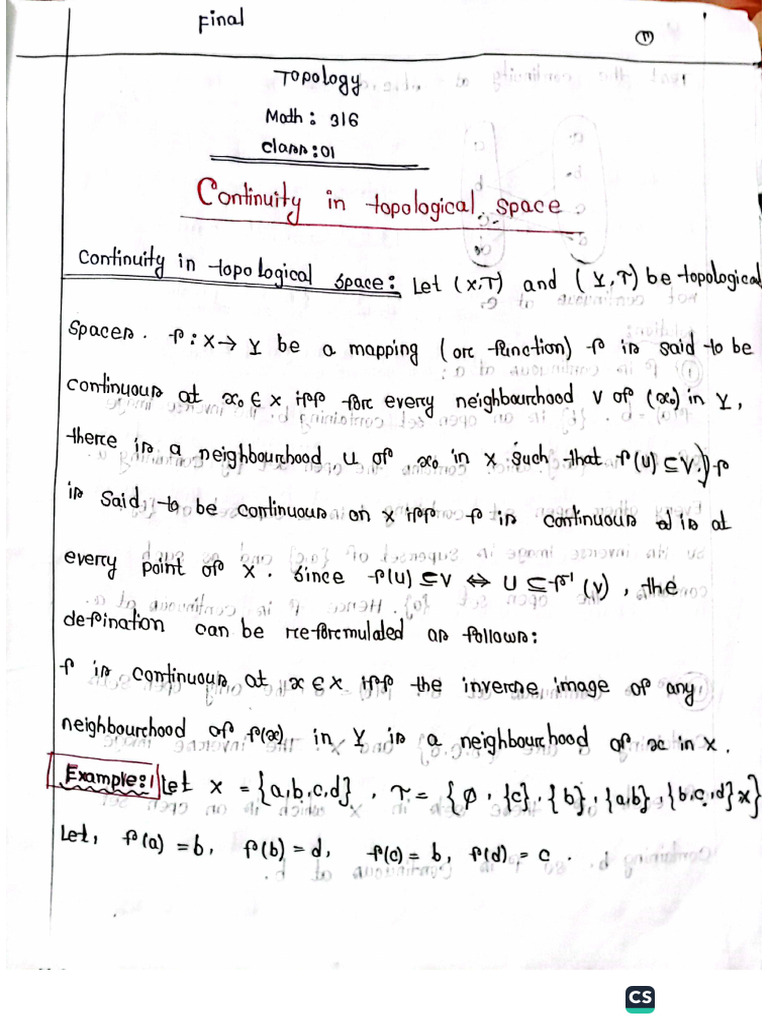 Final
11
Topology
Math: 316
class: 01
Continuity in topological space
Continuity in topological space: Let (X,T) and (Y,T) be topological
spaces. f: X→Y be a mapping (or function) f is said to be
continuous at x₀ ∈ X iff for every neighbourhood V of (x₀) in Y,
there is a neighbourhood U of x₀ in X such that f(U) ⊆ V.) f
is said to be continuous on X iff f is continuous at
every point of X. Since f(U) ⊆ V ⇔ U ⊆ f⁻¹(V), the
defination can be re-formulated as follows:
f is continuous at x ∈ X iff the inverse image of any
neighbourhood of f(x) in Y is a neighbourhood of x in X.
Example:1 Let X = {a,b,c,d}, T = {φ, {c}, {b}, {a,b}, {b,c,d} X}
Let, f(a) = b, f(b) = d, f(c) = b, f(d) = c.
CS